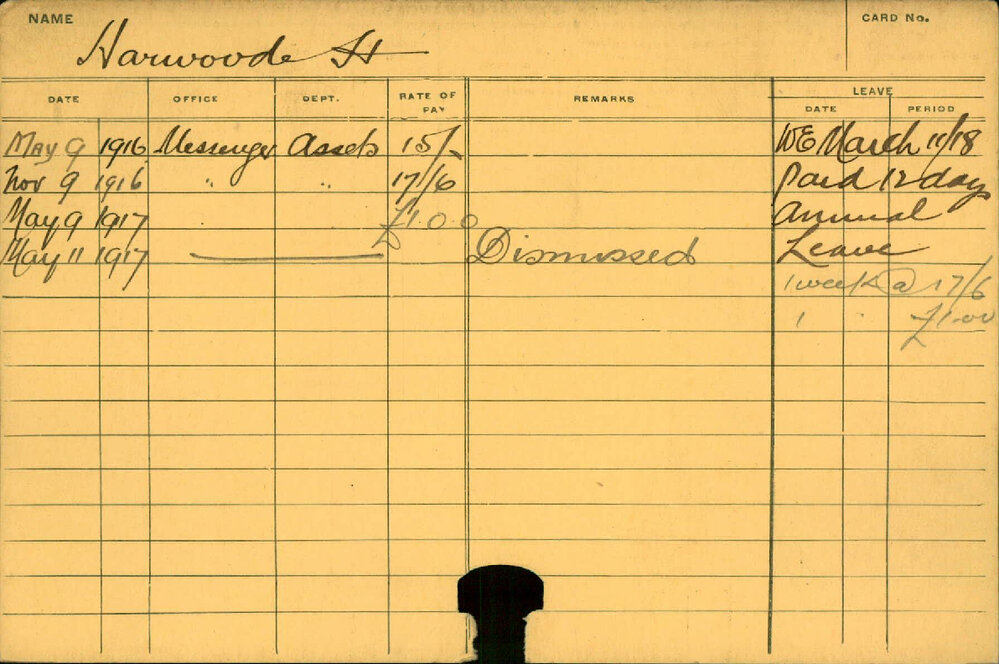 NAME
CARD No.
Harwoode H
DATE OFFICE DEPT. RATE OF PAY REMARKS LEAVE
DATE PERIOD
May 9 1916 Messenger Assets 15/- WE March 11/18
Nov 9 1916 " " 17/6 Paid 12 days
May 9 1917 £1.0.0 Annual
May 11 1917 Dismissed Leave
1 week @ 17/6
1 " £1.00